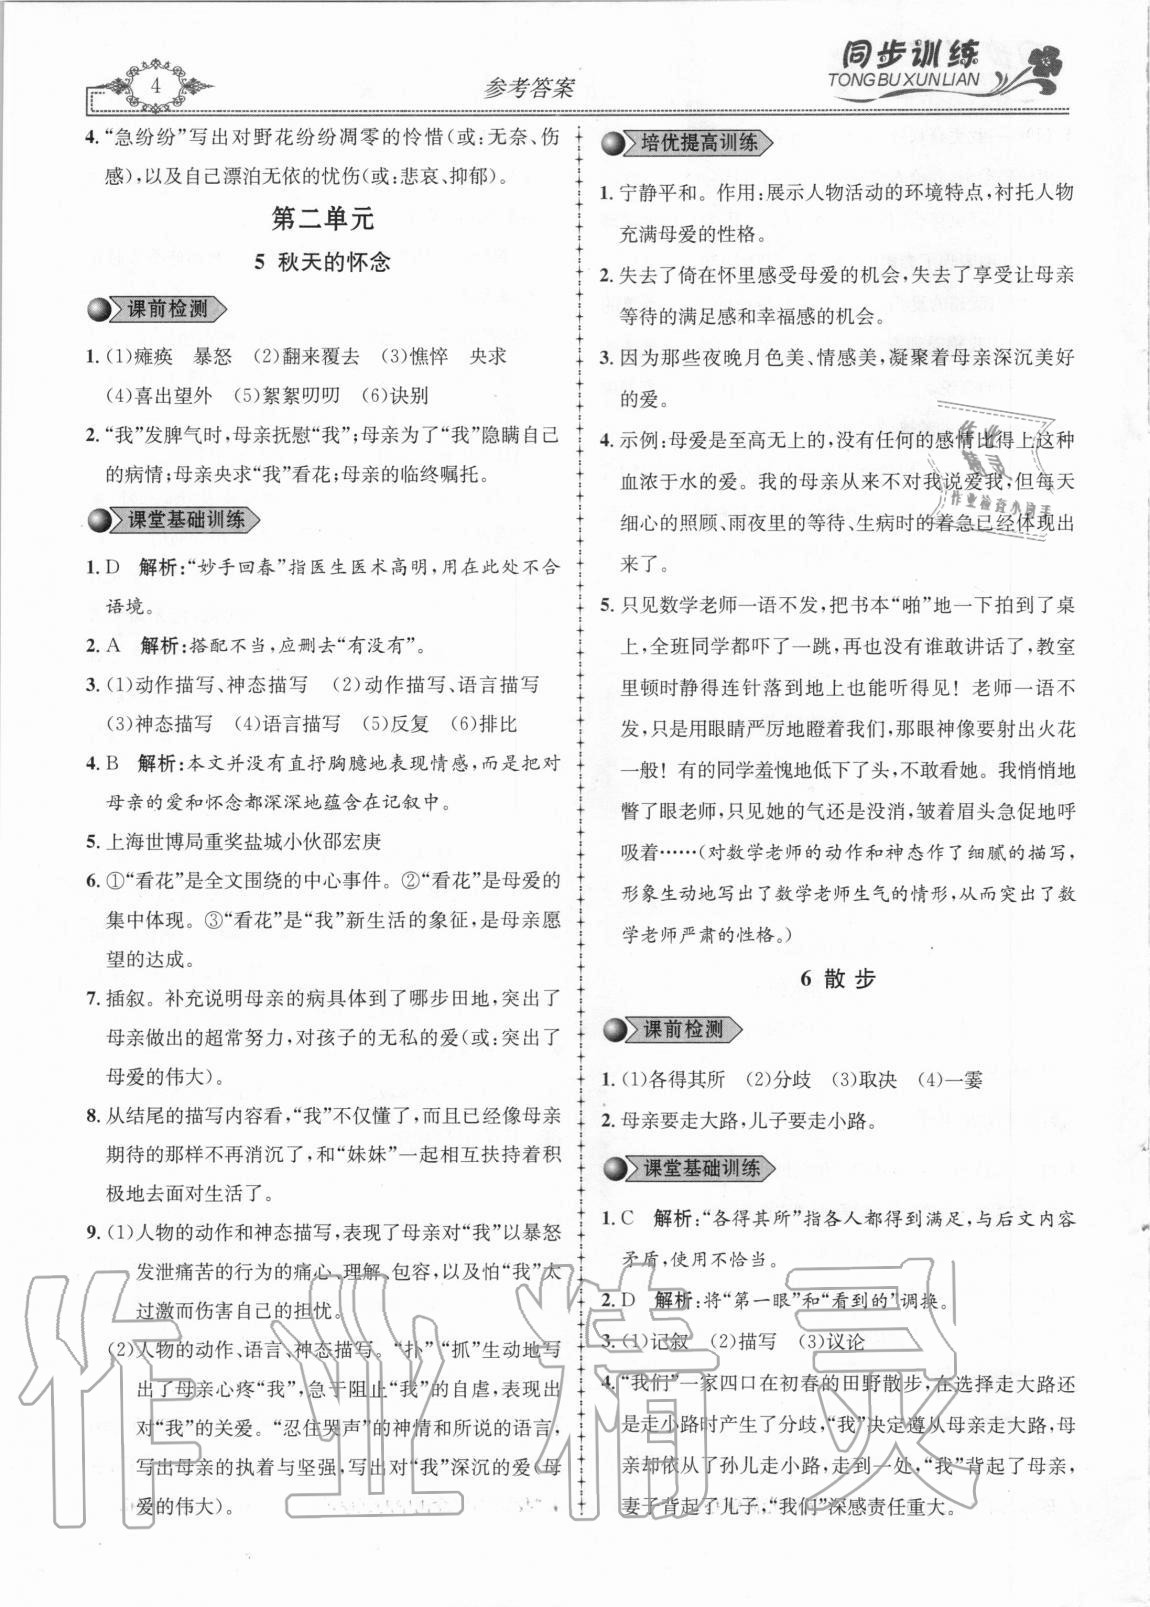 4
参考答案
同步训练
TONGBUXUNLIAN
4. “急纷纷”写出对野花纷纷凋零的怜惜(或:无奈、伤
感),以及自己漂泊无依的忧伤(或:悲哀、抑郁)。
第二单元
5 秋天的怀念
课前检测
1. (1)瘫痪 暴怒 (2)翻来覆去 (3)憔悴 央求
(4)喜出望外 (5)絮絮叨叨 (6)诀别
2. “我”发脾气时,母亲抚慰“我”;母亲为了“我”隐瞒自己
的病情;母亲央求“我”看花;母亲的临终嘱托。
课堂基础训练
1. D 解析:“妙手回春”指医生医术高明,用在此处不合
语境。
2. A 解析:搭配不当,应删去“有没有”。
3. (1)动作描写、神态描写 (2)动作描写、语言描写
(3)神态描写 (4)语言描写 (5)反复 (6)排比
4. B 解析:本文并没有直抒胸臆地表现情感,而是把对
母亲的爱和怀念都深深地蕴含在记叙中。
5. 上海世博局重奖盐城小伙邵宏庚
6. ①“看花”是全文围绕的中心事件。②“看花”是母爱的
集中体现。③“看花”是“我”新生活的象征,是母亲愿
望的达成。
7. 插叙。补充说明母亲的病具体到了哪步田地,突出了
母亲做出的超常努力,对孩子的无私的爱(或:突出了
母爱的伟大)。
8. 从结尾的描写内容看,“我”不仅懂了,而且已经像母亲
期待的那样不再消沉了,和“妹妹”一起相互扶持着积
极地去面对生活了。
9. (1)人物的动作和神态描写,表现了母亲对“我”以暴怒
发泄痛苦的行为的痛心、理解、包容,以及怕“我”太
过激而伤害自己的担忧。
(2)人物的动作、语言、神态描写。“扑”“抓”生动地写
出了母亲心疼“我”,急于阻止“我”的自虐,表现出
对“我”的关爱。“忍住哭声”的神情和所说的语言,
写出母亲的执着与坚强,写出对“我”深沉的爱(母
爱的伟大)。
培优提高训练
1. 宁静平和。作用:展示人物活动的环境特点,衬托人物
充满母爱的性格。
2. 失去了倚在怀里感受母爱的机会,失去了享受让母亲
等待的满足感和幸福感的机会。
3. 因为那些夜晚月色美、情感美,凝聚着母亲深沉美好
的爱。
4. 示例:母爱是至高无上的,没有任何的感情比得上这种
血浓于水的爱。我的母亲从来不对我说爱我,但每天
细心的照顾、雨夜里的等待、生病时的着急已经体现出
来了。
5. 只见数学老师一语不发,把书本“啪”地一下拍到了桌
上,全班同学都吓了一跳,再也没有谁敢讲话了,教室
里顿时静得连针落到地上也能听得见！老师一语不
发,只是用眼睛严厉地瞪着我们,那眼神像要射出火花
一般！有的同学羞愧地低下了头,不敢看她。我悄悄地
瞥了眼老师,只见她的气还是没消,皱着眉头急促地呼
吸着……(对数学老师的动作和神态作了细腻的描写,
形象生动地写出了数学老师生气的情形,从而突出了数
学老师严肃的性格。)
6 散步
课前检测
1. (1)各得其所 (2)分歧 (3)取决 (4)一霎
2. 母亲要走大路,儿子要走小路。
课堂基础训练
1. C 解析:“各得其所”指各人都得到满足,与后文内容
矛盾,使用不恰当。
2. D 解析:将“第一眼”和“看到的”调换。
3. (1)记叙 (2)描写 (3)议论
4. “我们”一家四口在初春的田野散步,在选择走大路还
是走小路时产生了分歧,“我”决定遵从母亲走大路,母
亲却依从了孙儿走小路,走到一处,“我”背起了母亲,
妻子背起了儿子,“我们”深感责任重大。
作业精灵
作业
精灵
作业检查小助手